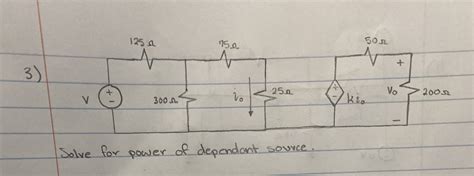 125 Ω 75 Ω 50 Ω
3)
+ - V 300 Ω i₀ 25 Ω + - k i₀ + V₀ - 200 Ω
Solve for power of dependant source.